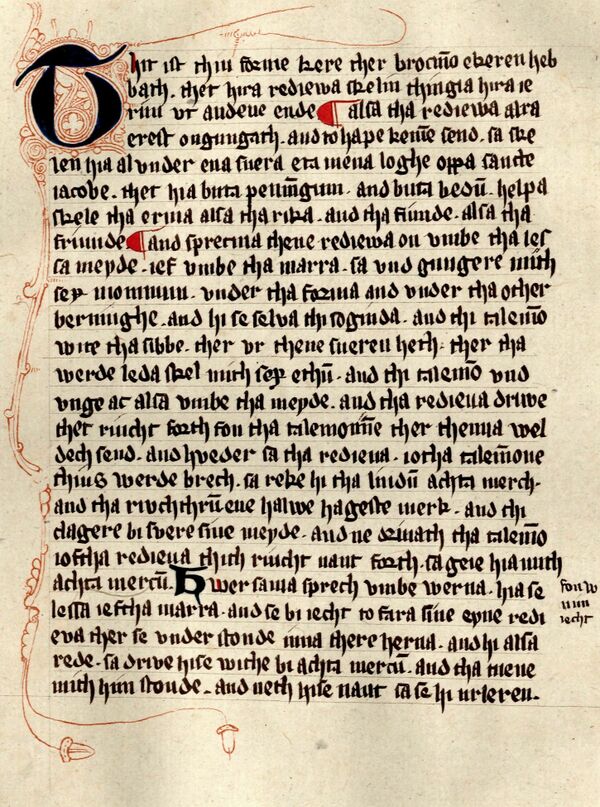 Thit ist thiu forme kere ther brocmo ekeren heb
bath. thet hira rediewa skelin thingia hira ie
rim vt and eue ende ¶ alsa tha rediewa alra
erest ongungath. and to hape keme send. sa ske
len hia al vnder ena suera eta mena loghe oppa sancte
iacobe. thet hia buta pennīgum. and buta bedū. helpa
skele tha erma alsa tha rika. and tha fiunde. alsa tha
friunde ¶ and sprecma thene rediewa on vmbe tha les
sa meyde. ief vmbe tha marra. sa vnd gungere mith
sex monnum. vnder tha forma and vnder tha other
berninghe. and hi se selua thi soginda. and thi talemō
wite tha sibbe. ther vr thene sueren heth. ther tha
werde leda skel mith sex ethū. and thi talemō vnd
vnge ac alsa vmbe tha meyde. and tha redieua driwe
thet riucht forth fon tha talemonne ther thenna wel
dech send. and hweder sa tha redieua. iotha talemōne
thius werde brech. sa reke hi tha liudū achta merch.
and tha riuchthrū ene halwe hageste merk. and thi
clagere bi suere sine meyde. and ne driuath tha talemō
ioftha redieua thich riucht naut forth. sa geie hia mith
achta mercū. Hwersama sprech vmbe werua. hia se
lessa ieftha marra. and se bi iecht to fara sine eyne redi
eva ther se vnder stonde inna there herna. and hi alsa
rede. sa drive hise withe bi achta mercū. and tha mene
mith him stonde. and neth hise naut sa se hi urleren.
fon w
nnn
iecht